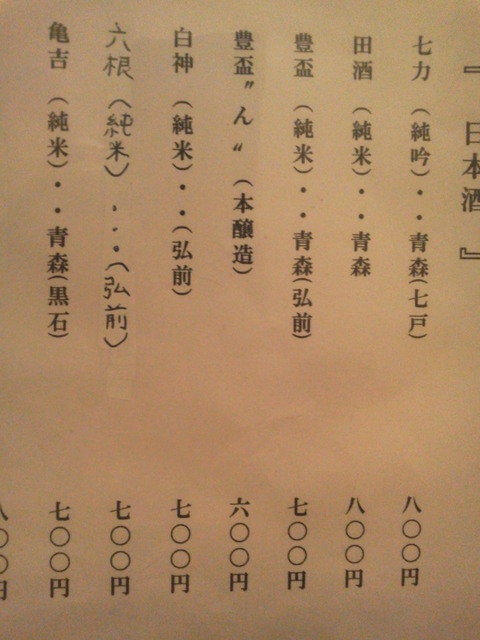 『 日本酒 』
七力 (純吟)・・青森(七戸) 八〇〇円
田酒 (純米)・・青森 八〇〇円
豊盃 (純米)・・青森(弘前) 七〇〇円
豊盃〃ん〃 (本醸造) 六〇〇円
白神 (純米)・・(弘前) 七〇〇円
六根 (純米)・・・(弘前) 七〇〇円
亀吉 (純米)・・青森(黒石) 七〇〇円
八〇〇円